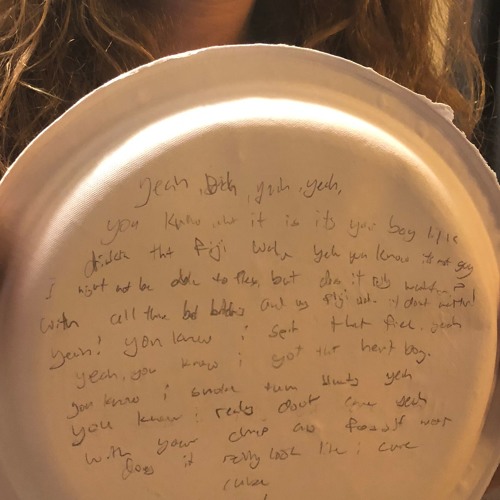 yeah, Bitch, yeah, yeah,
you know who it is its your boy
drinkin that Fiji Water yeah you know its not gay
I might not be able to flex, but does it rlly matter?
with all these bad bitches and my Fiji wat. it dont matter!
yeah! you know i spit that fire. yeah
yeah, you know i got that heat boy.
you know i smoke them blunts yeah
you know i really dont care yeah
with your
Does it really look like i care